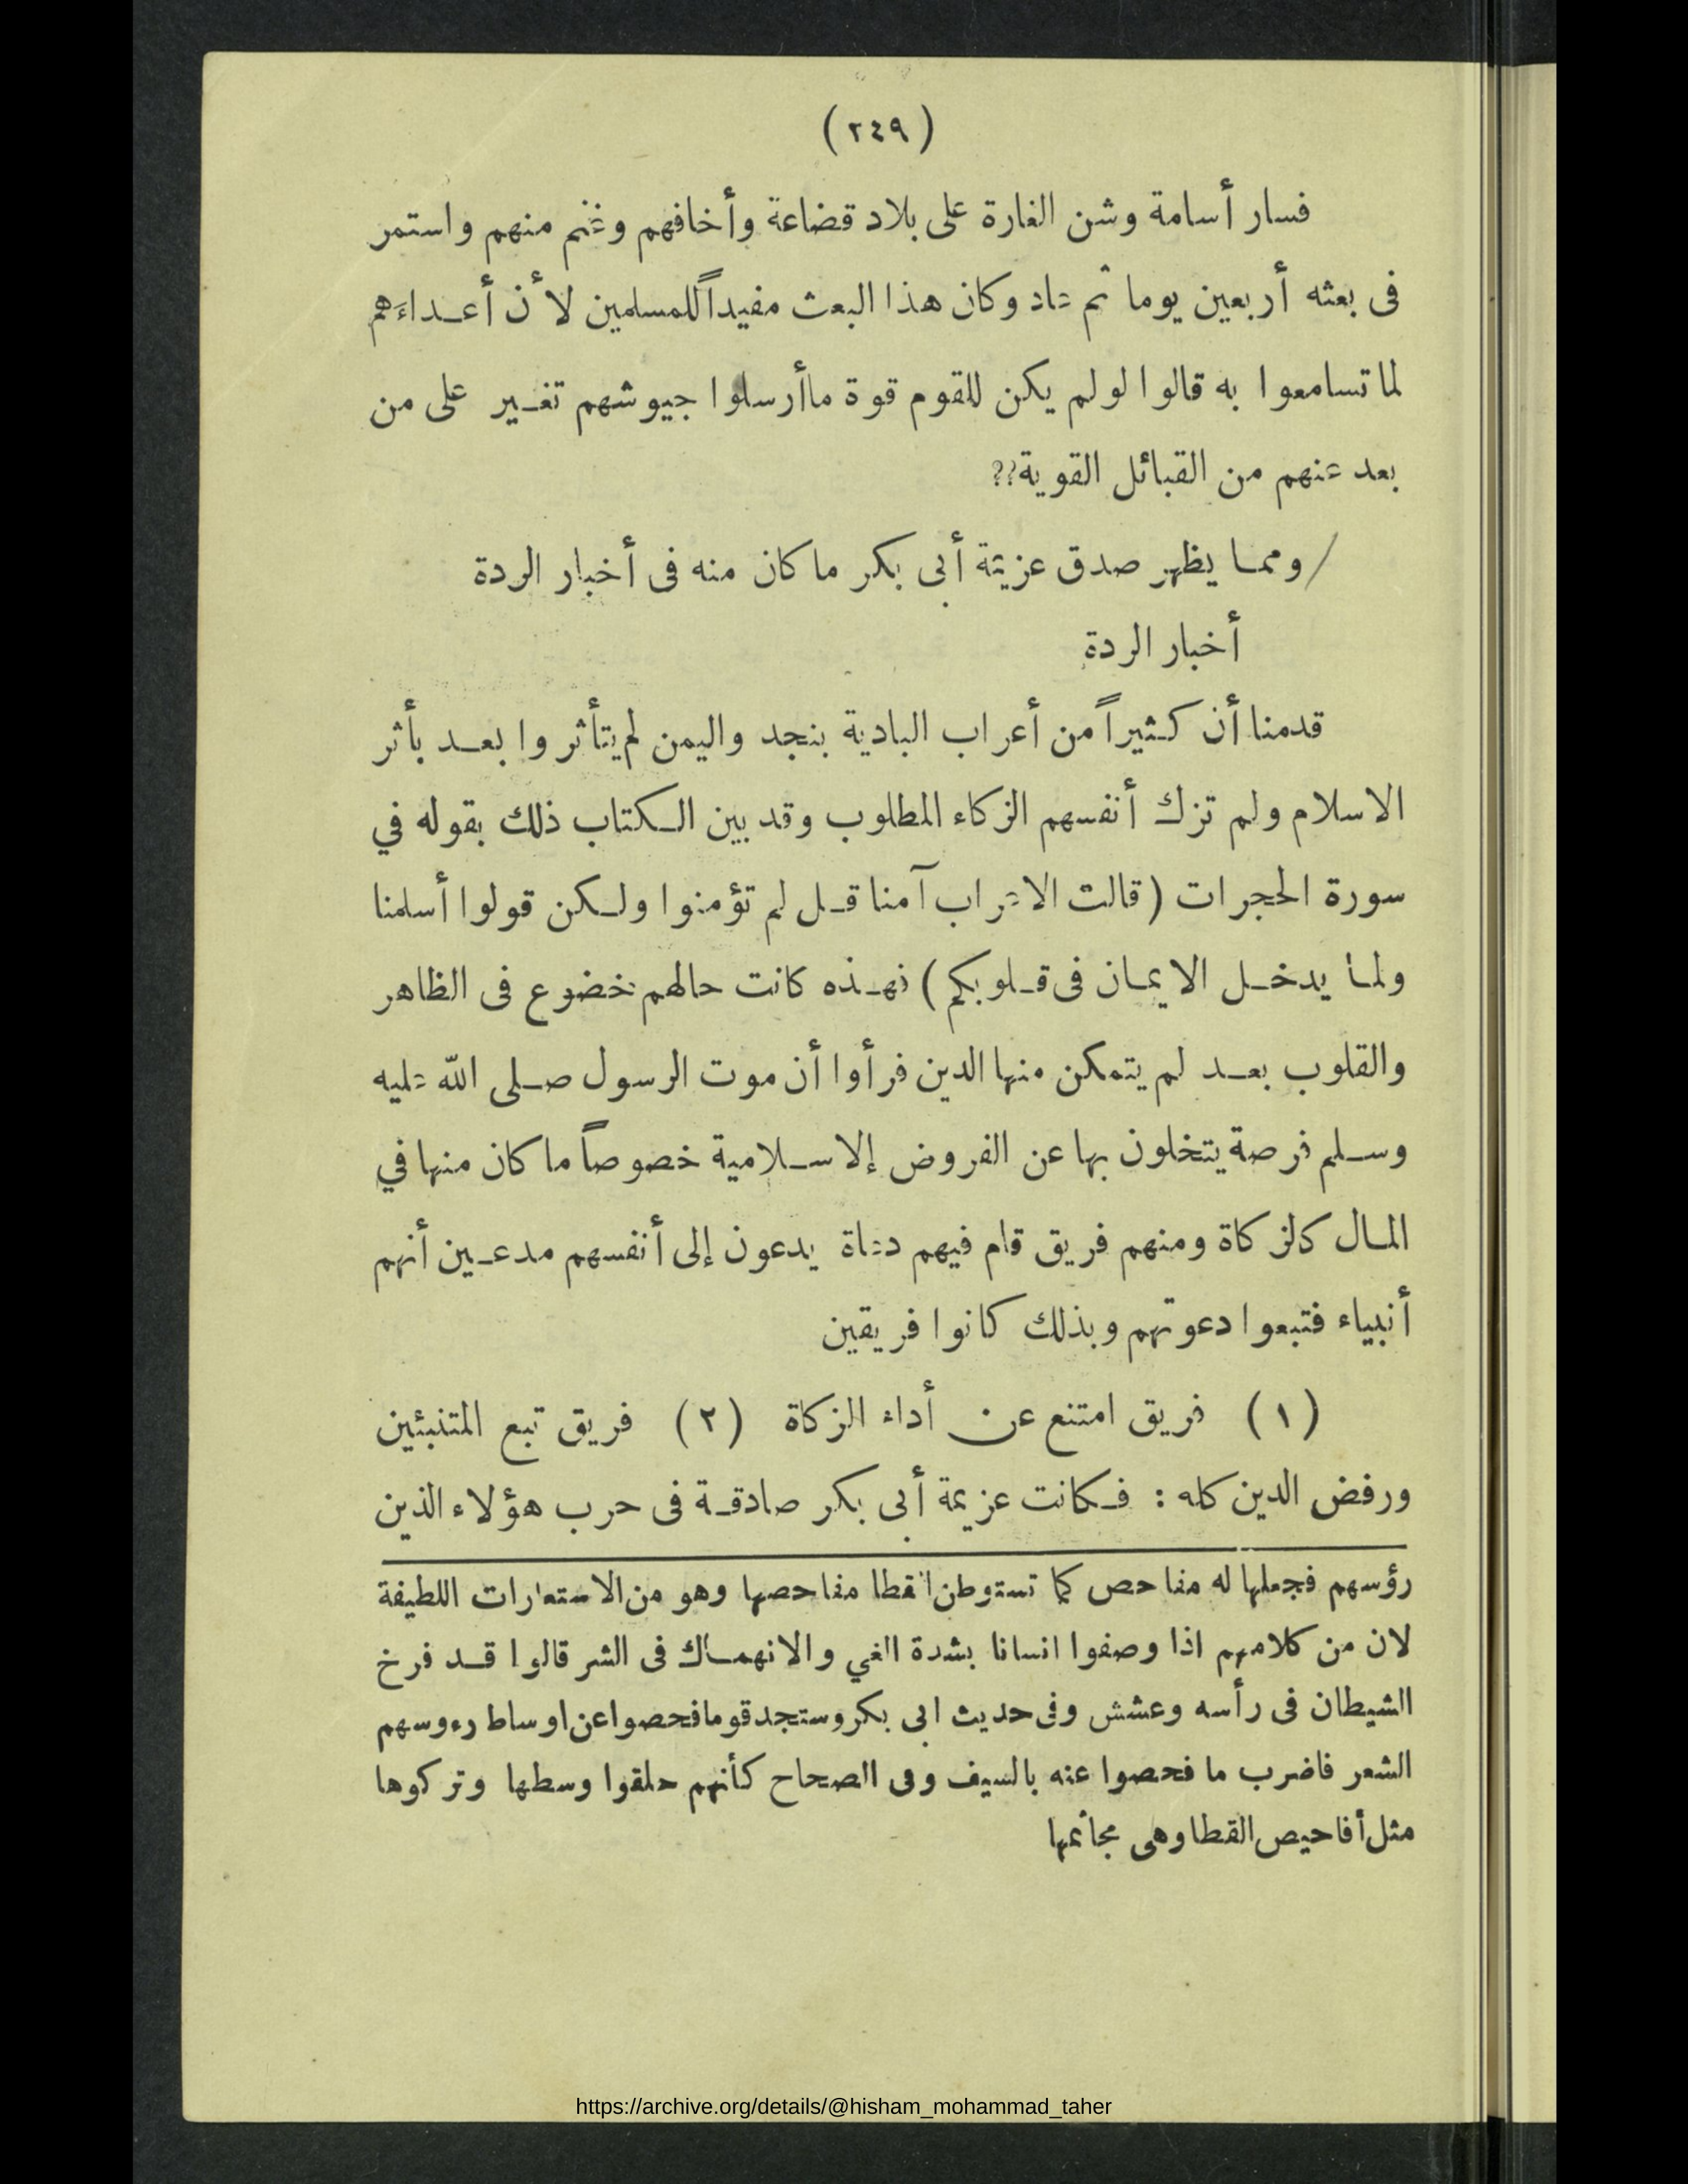 (٢٤٩)
فسار أسامة وشن الغارة على بلاد قضاعة وأخافهم وغنم منهم واستمر
فى بعثه أربعين يوما ثم عاد وكان هذا البعث مفيداً للمسلمين لأن أعداءَهم
لما تسامعوا به قالوا لولم يكن للقوم قوة ماأرسلوا جيوشهم تغير على من
بعد عنهم من القبائل القوية؟؟
/ ومما يظهر صدق عزيمة أبى بكر ما كان منه فى أخبار الردة
أخبار الردة
قدمنا أن كثيراً من أعراب البادية بنجد واليمن لم يتأثروا بعد بأثر
الاسلام ولم تزك أنفسهم الزكاء المطلوب وقد بين الكتاب ذلك بقوله في
سورة الحجرات (قالت الاعراب آمنا قل لم تؤمنوا ولكن قولوا أسلمنا
ولما يدخل الايمان فى قلوبكم) فهذه كانت حالهم خضوع فى الظاهر
والقلوب بعد لم يتمكن منها الدين فرأوا أن موت الرسول صلى الله عليه
وسلم فرصة يتخلون بها عن الفروض إلاسلامية خصوصاً ما كان منها في
المال كالزكاة ومنهم فريق قام فيهم دعاة يدعون إلى أنفسهم مدعين أنهم
أنبياء فتبعوا دعوتهم وبذلك كانوا فريقين
(١) فريق امتنع عن أداء الزكاة (٢) فريق تبع المتنبئين
ورفض الدين كله : فكانت عزيمة أبى بكر صادقة فى حرب هؤلاء الذين
رؤسهم فجعلها له مفاحص كما تستوطن القطا مفاحصها وهو من الاستعارات اللطيفة
لان من كلامهم اذا وصفوا انسانا بشدة الغي والانهماك فى الشر قالوا قد فرخ
الشيطان فى رأسه وعشش وفى حديث ابى بكر وستجد قوما فحصوا عن اوساط رءوسهم
الشعر فاضرب ما فحصوا عنه بالسيف وفى الصحاح كأنهم حلقوا وسطها وتركوها
مثل أفاحيص القطا وهى مجاثمها
https://archive.org/details/@hisham_mohammad_taher